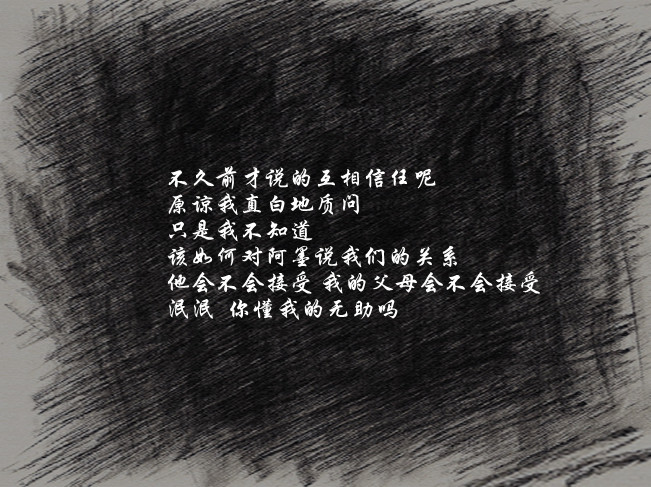 不久前才说的互相信任呢
原谅我直白地质问
只是我不知道
该如何对阿墨说我们的关系
他会不会接受 我的父母会不会接受
泯泯 你懂我的无助吗